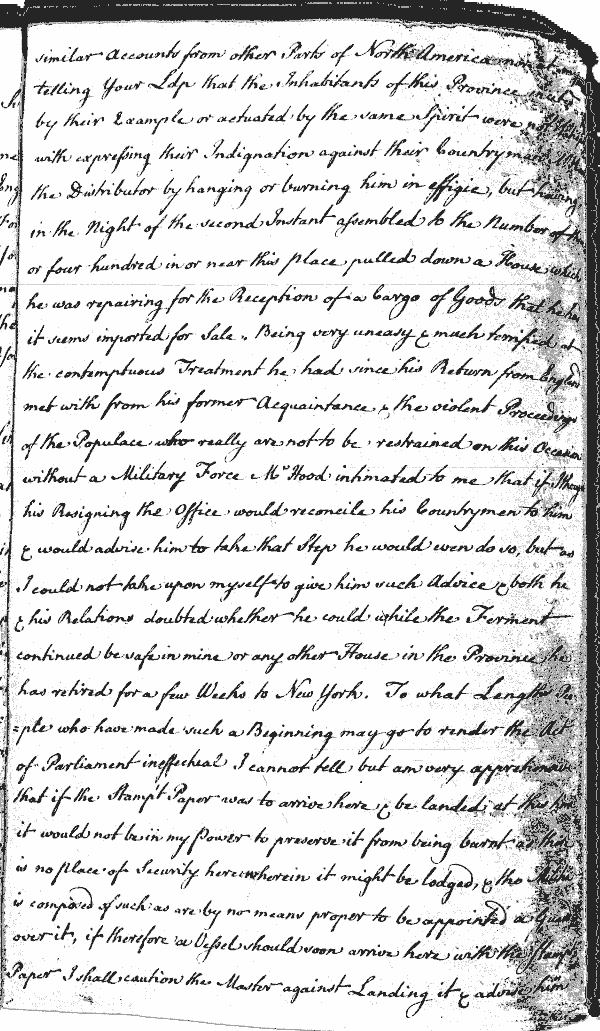 similar Accounts from other Parts of North America
telling Your Ldp that the Inhabitants of this Province
by their Example or actuated by the same Spirit were not
with expressing their Indignation against their Countryman
the Distributor by hanging or burning him in effigie, but having
in the Night of the second Instant assembled to the Number of
or four hundred in or near this place pulled down a House which
he was repairing for the Reception of a Cargo of Goods that he has
it seems imported for Sale. Being very uneasy & much terrified at
the contemptuous Treatment he had since his Return from England
met with from his former Acquaintance & the violent Proceedings
of the Populace who really are not to be restrained on this Occasion
without a Military Force Mr Hood intimated to me that if I thought
his Resigning the Office would reconcile his Countrymen to him
& would advise him to take that Step he would even do so, but as
I could not take upon myself to give him such Advice & both he
& his Relations doubted whether he could while the Ferment
continued be safe in mine or any other House in the Province he
has retired for a few Weeks to New York. To what Lengths Peo
=ple who have made such a Beginning may go to render the Act
of Parliament ineffectual I cannot tell but am very apprehensive
that if the Stampt Paper was to arrive here & be landed at this time
it would not be in my Power to preserve it from being burnt as there
is no place of Security here wherein it might be lodged, & the Militia
is composed of such as are by no means proper to be appointed a Guard
over it, if therefore a Vessel should soon arrive here with the Stampt
Paper I shall caution the Master against Landing it & advise him